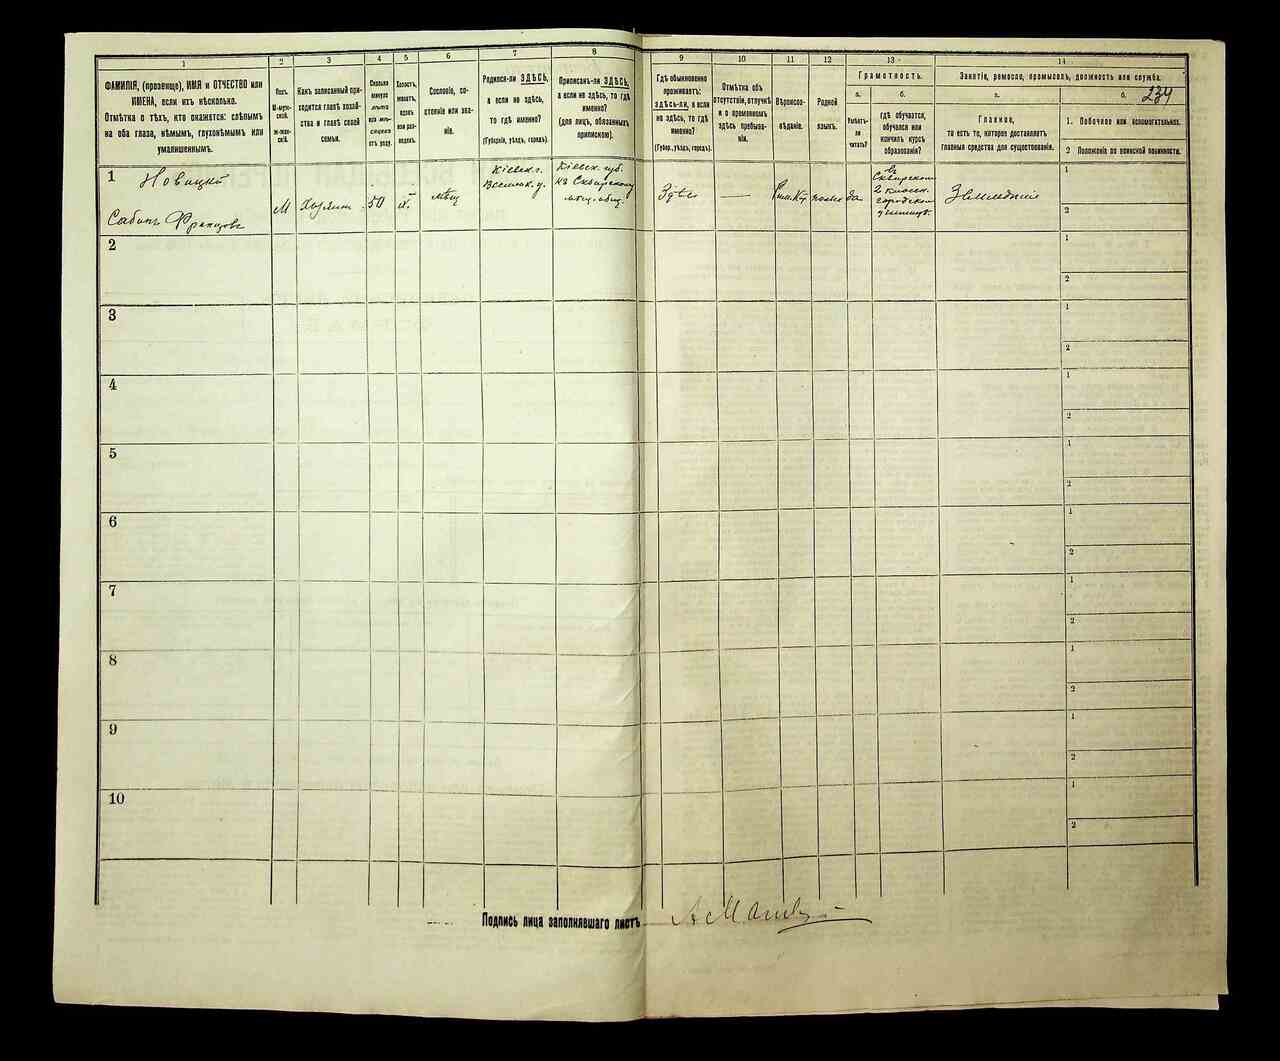 1
2
3
4
5
6
7
8
9
10
11
12
13
14
ФАМИЛІЯ, (прозвище), ИМЯ и ОТЧЕСТВО или
ИМЕНА, если ихъ нѣсколько.
Отмѣтка о тѣхъ, кто окажется: слѣпымъ
на оба глаза, нѣмымъ, глухонѣмымъ или
умалишеннымъ.
Полъ.
М-муж-
ской.
Ж-жен-
скій.
Какъ записанный при-
ходится главѣ хозяй-
ства и главѣ своей
семьи.
Сколько
минуло
лѣтъ
или мѣ-
сяцевъ
отъ роду.
Холостъ,
женатъ,
вдовъ
или раз-
веденъ.
Сословіе, со-
стояніе или зва-
ніе.
Родился-ли ЗДѢСЬ,
а если не здѣсь,
то гдѣ именно?
(Губернія, уѣздъ, городъ).
Приписанъ-ли ЗДѢСЬ,
а если не здѣсь, то гдѣ
именно?
(для лицъ, обязанныхъ
припискою).
Гдѣ обыкновенно
проживаетъ:
ЗДѢСЬ-ли, а если
не здѣсь, то гдѣ
именно?
(Губер., уѣздъ, городъ).
Отмѣтка объ
отсутствіи, отлучкѣ
и о временномъ
здѣсь пребыва-
ніи.
Вѣроиспо-
вѣданіе.
Родной
языкъ.
Грамотность.
а.
Умѣетъ-
ли
читать?
б.
гдѣ обучается,
обучался или
кончилъ курсъ
образованія?
Занятіе, ремесло, промыселъ, должность или служба.
а.
Главное,
то есть то, которое доставляетъ
главныя средства для существованія.
б.
234
1. Побочное или вспомогательное.
2 Положеніе по воинской повинности.
1
Новицкій
Сабинъ Францовъ
М
50
х.
мѣщ
Кіевск. г.
Кіевск. губ.
къ Сквирскому
мѣщ. общ.
Здѣсь
—
Рим. Кт.
польск
да
въ
Сквирском
2 классн.
городском
училищѣ
Земледѣліе
1
2
2
1
2
3
1
2
4
1
2
5
1
2
6
1
2
7
1
2
8
1
2
9
1
2
10
1
2
Подпись лица заполнявшаго листъ